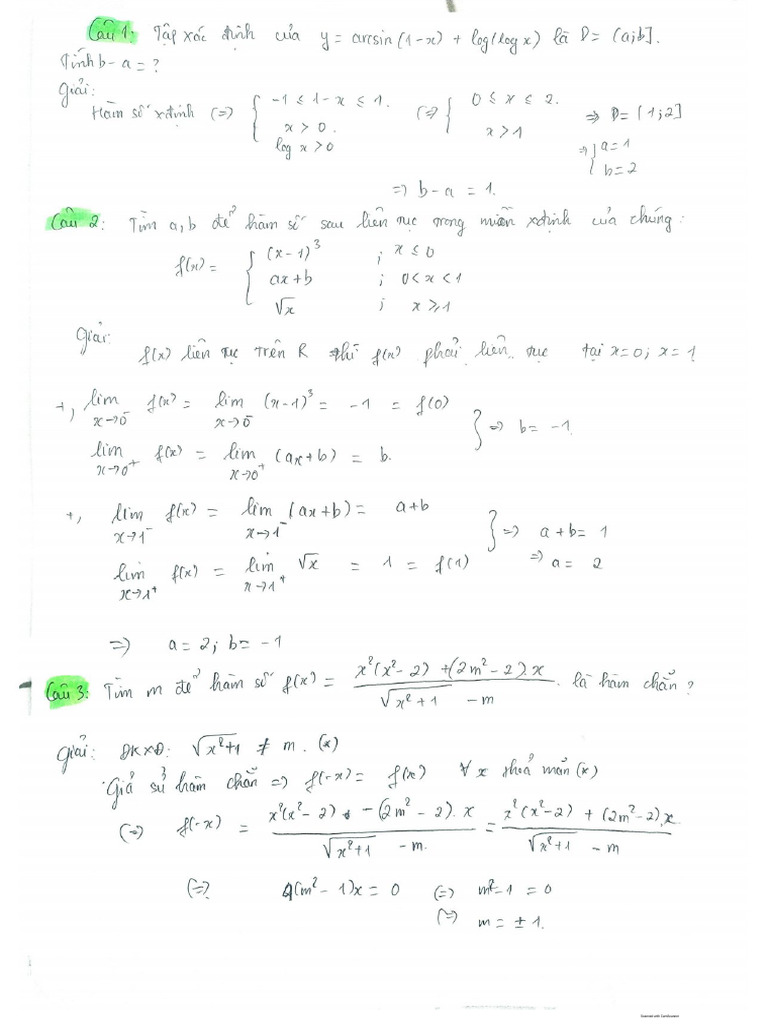 Câu 1. Tập xác định của y = arcsin(1-x) + log(log x) là D = (a;b].
Tính b - a = ?
Giải:
Hàm số xđịnh (=) { -1 ≤ 1-x ≤ 1. (=) { 0 ≤ x ≤ 2. => D = (1;2]
x > 0. x > 1 => { a = 1
log x > 0 b = 2
=> b - a = 1.
Câu 2: Tìm a, b để hàm số sau liên tục trong miền xđịnh của chúng:
f(x) = { (x-1)^3 ; x ≤ 0
ax+b ; 0 < x < 1
√x ; x ≥ 1
Giải:
f(x) liên tục trên R thì f(x) phải liên tục tại x=0; x=1
+, lim x→0^- f(x) = lim x→0^- (x-1)^3 = -1 = f(0)
} => b = -1.
lim x→0^+ f(x) = lim x→0^+ (ax+b) = b.
+, lim x→1^- f(x) = lim x→1^- (ax+b) = a+b
} => a+b = 1
lim x→1^+ f(x) = lim x→1^+ √x = 1 = f(1) => a = 2
=> a = 2; b = -1
Câu 3: Tìm m để hàm số f(x) = (x^2(x^2-2) + (2m^2-2).x) / (√(x^2+1) - m) là hàm chẵn?
Giải: ĐKXĐ: √(x^2+1) ≠ m. (*)
Giả sử hàm chẵn => f(-x) = f(x) ∀ x thoả mãn (*)
(=) f(-x) = (x^2(x^2-2) - (2m^2-2).x) / (√(x^2+1) - m.) = (x^2(x^2-2) + (2m^2-2).x) / (√(x^2+1) - m)
(=) 4(m^2-1)x = 0 (=) m^2-1 = 0
(=) m = ± 1.
Scanned with CamScanner